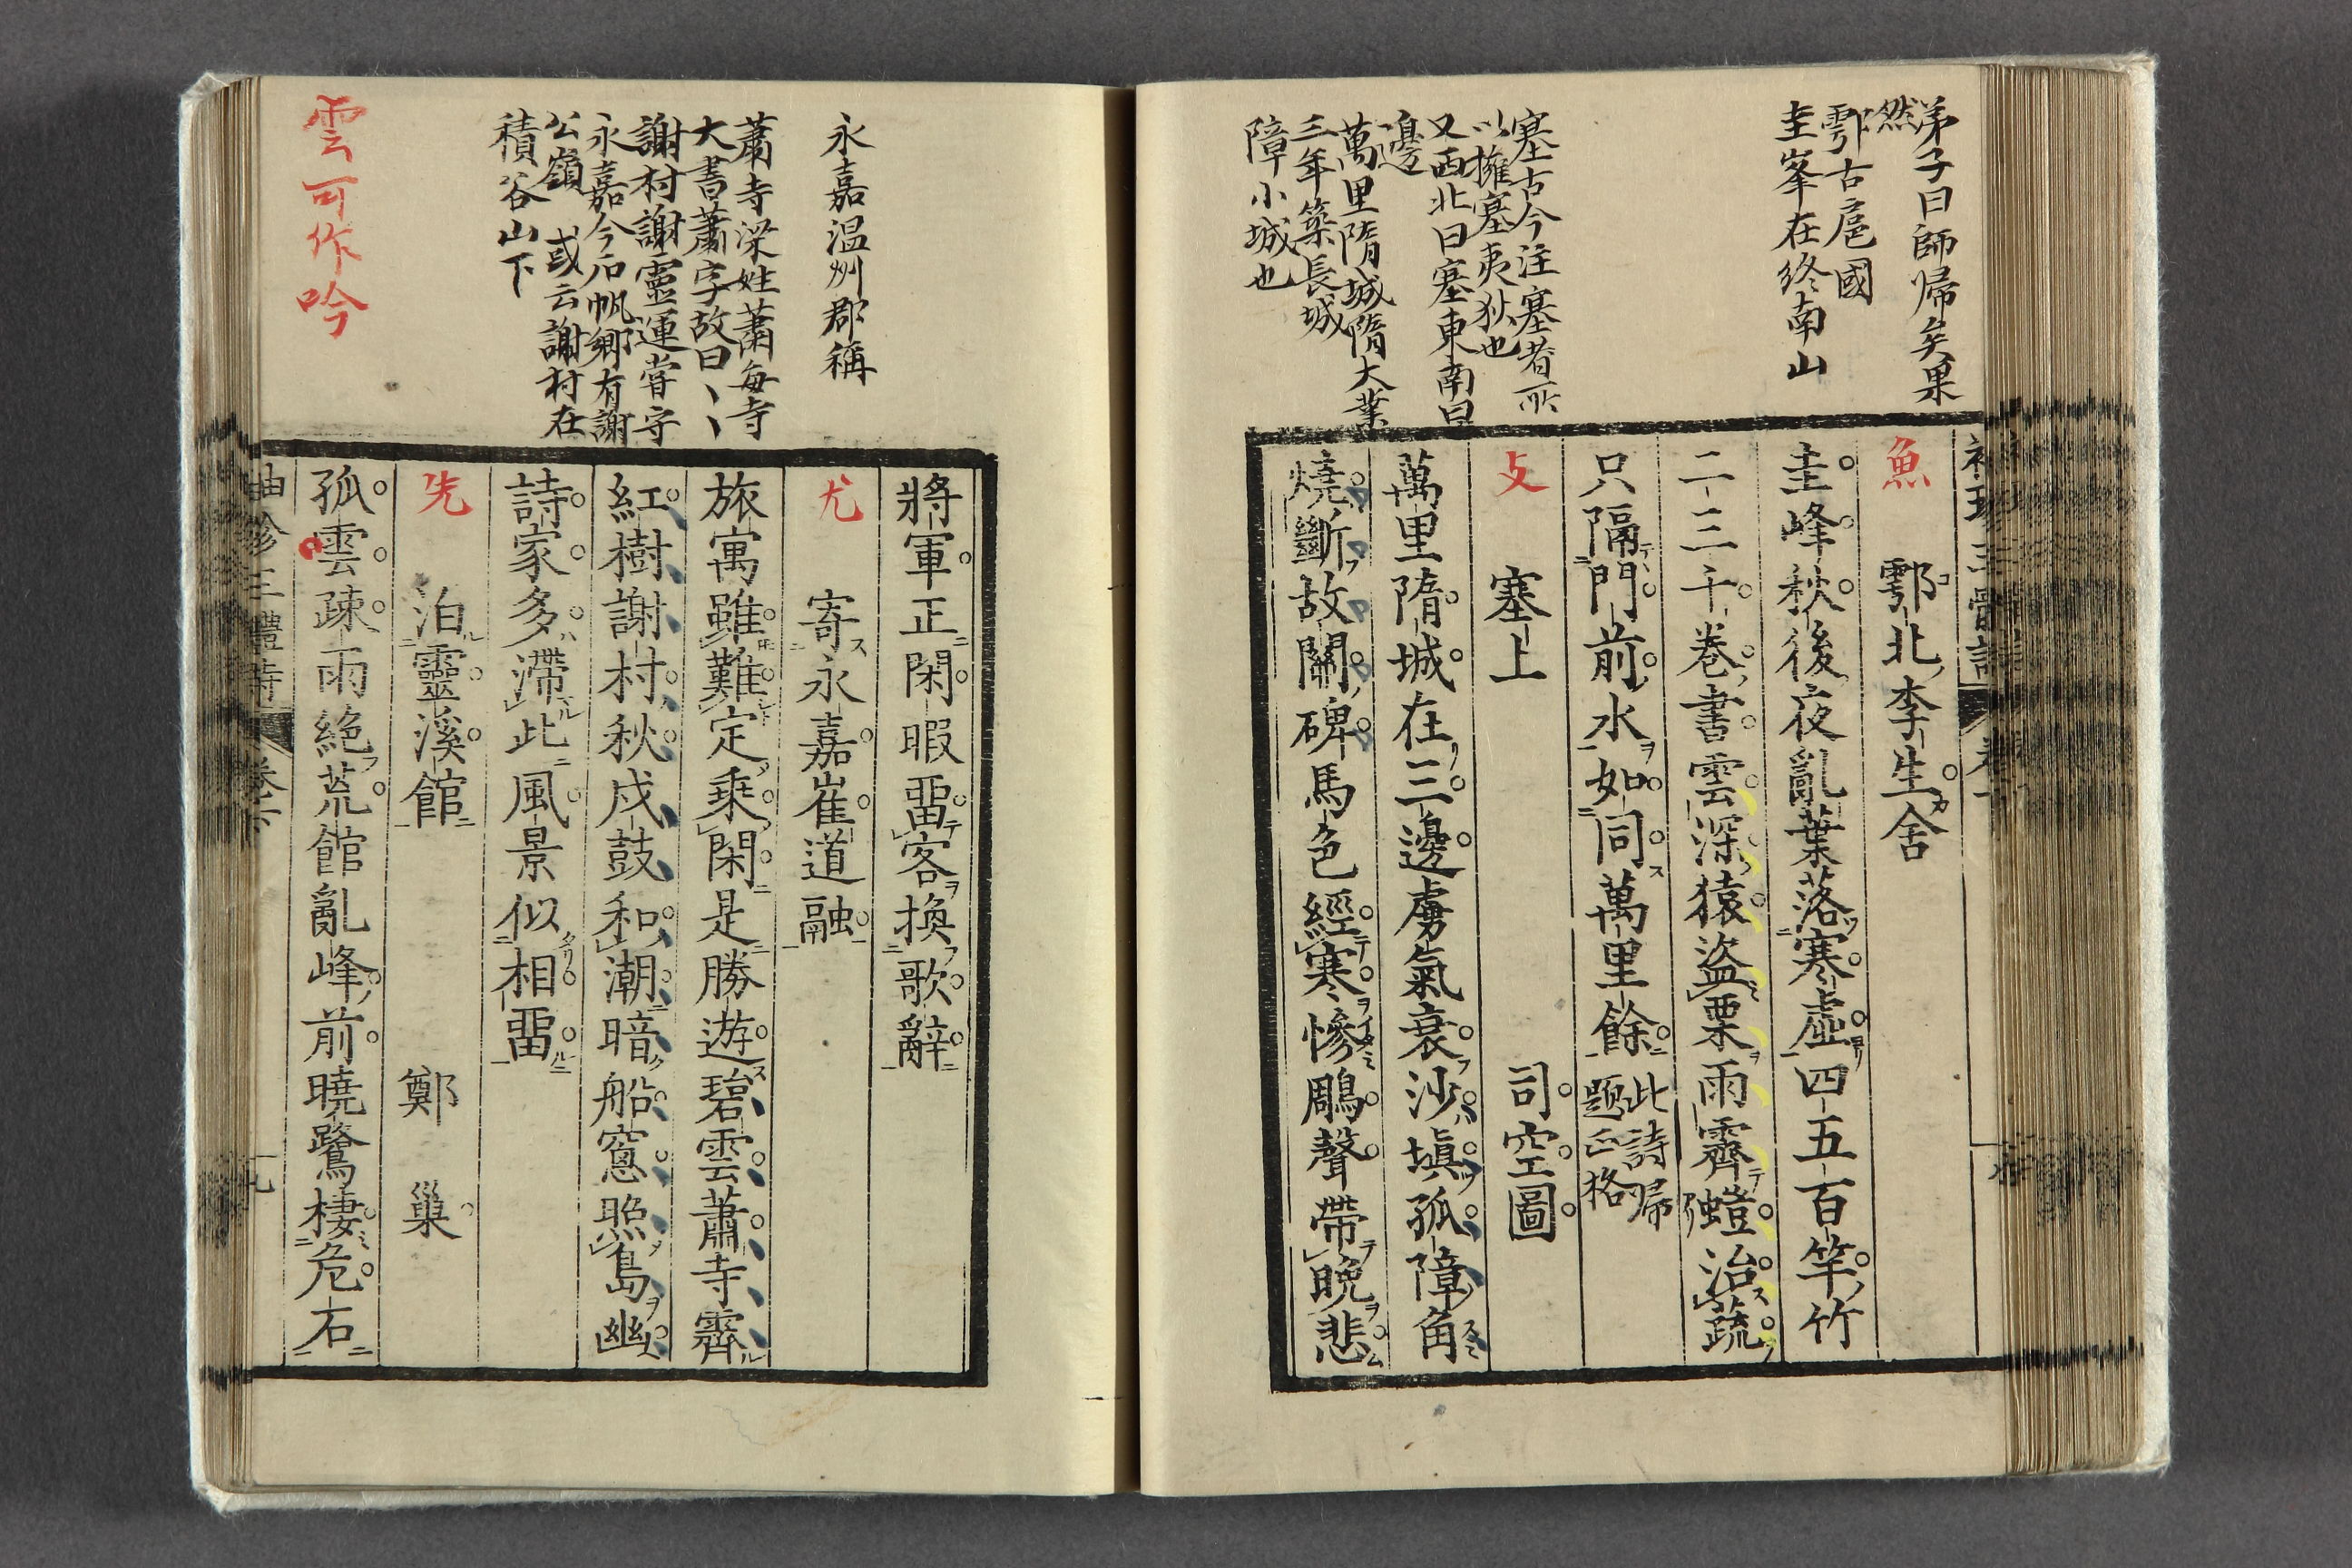 弟子曰師歸矣果
然
鄠古扈國
圭峯在終南山
塞古今注塞者所
以擁塞夷狄也
又西北曰塞東南曰
邊
萬里隋城隋大業
三年築長城
障小城也
魚
鄠北李生舍
圭峰秋後夜亂葉落寒虛四五百竿竹
二三千卷書雲深猿盜栗雨霽螘治蔬
只隔門前水如同萬里餘
此詩歸
題正格
支
塞上
司空圖
萬里隋城在三邊虜氣衰沙塡孤障角
燒斷故關碑馬色經寒慘鵰聲帶晩悲
永嘉温州郡稱
蕭寺梁姓蕭每寺
大書蕭字故曰丶丶
謝村謝靈運嘗守
永嘉今石帆鄉有謝
公嶺 或云謝村在
積谷山下
雲可作吟
將軍正閑暇畱客換歌辭
尤
寄永嘉崔道融
旅寓雖難定乘閑是勝遊碧雲蕭寺霽
紅樹謝村秋戍鼓和潮暗船窓照島幽
詩家多滯此風景似相畱
先
泊靈溪館
鄭巢
孤雲疎雨絶荒館亂峰前曉鷺棲危石
袖珍三體詩
卷下
九